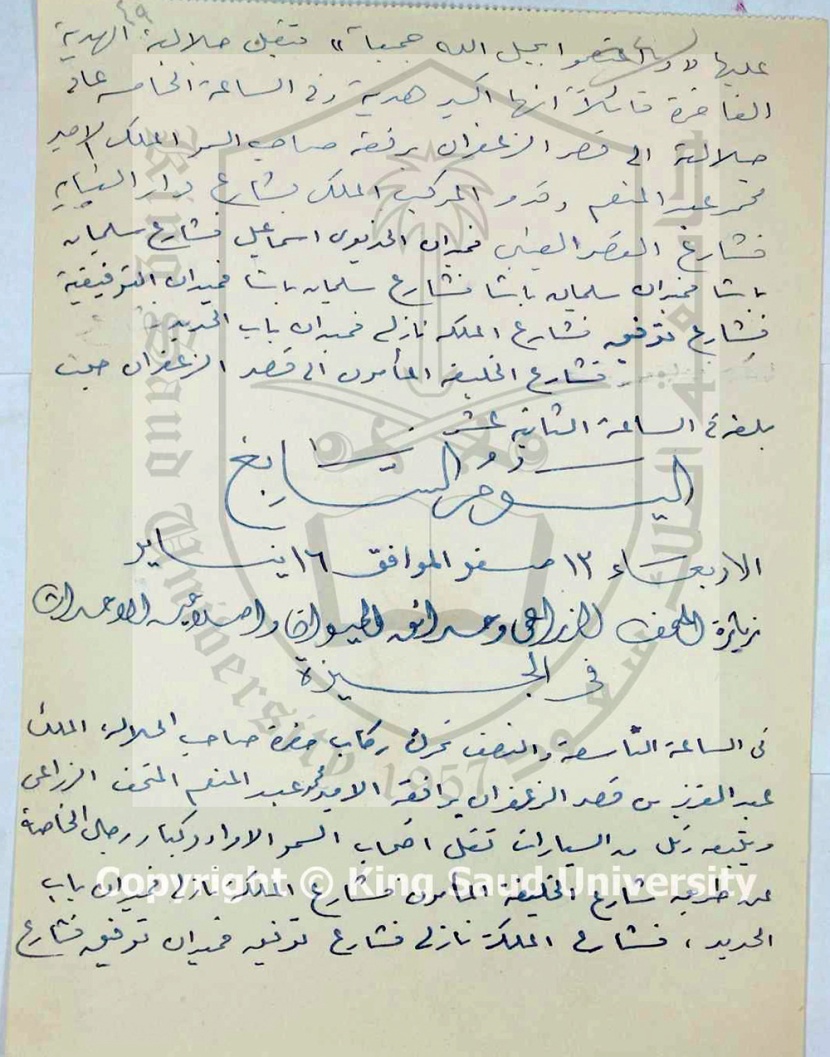 ٤٩
عليها «واعتصموا بحبل الله جميعا» فتقبل جلالته الهدية
الفاخرة قائلاً انها اكبر هدية وفي الساعة الخامسة عاد
جلالته الى قصر الزعفران برفقة صاحب السمو الملكي الامير
محمد عبد المنعم وقد مر الموكب الملكي بشارع دار النيابة
فشارع القصر العيني فميدان الخديوي اسماعيل فشارع سليمان
باشا فميدان سليمان باشا فشارع سليمان باشا فميدان التوفيقية
فشارع توفيق فشارع الملكة نازلي فميدان باب الحديد
فشارع الخليفة المأمون الى قصر الزعفران حيث
بلغه في الساعة الثانية عشر
اليوم السابع
الاربعاء ١٣ صفر الموافق ١٦ يناير
زيارة المتحف الزراعي وحدائق الحيوان
في الجيزة
في الساعة التاسعة والنصف تحرك ركاب حضرة صاحب الجلالة الملك
عبد العزيز من قصر الزعفران يرافقه الامير محمد عبد المنعم المتحف الزراعي
ويتبعه رتل من السيارات تقل اصحاب السمو الامراء وكبار رجال الخاصة
عن طريق شارع الخليفة المأمون فشارع الملكة نازلي فميدان باب
الحديد، فشارع الملكة نازلي فشارع توفيق فميدان توفيق فشارع
King Saud University 1957
Copyright © King Saud University